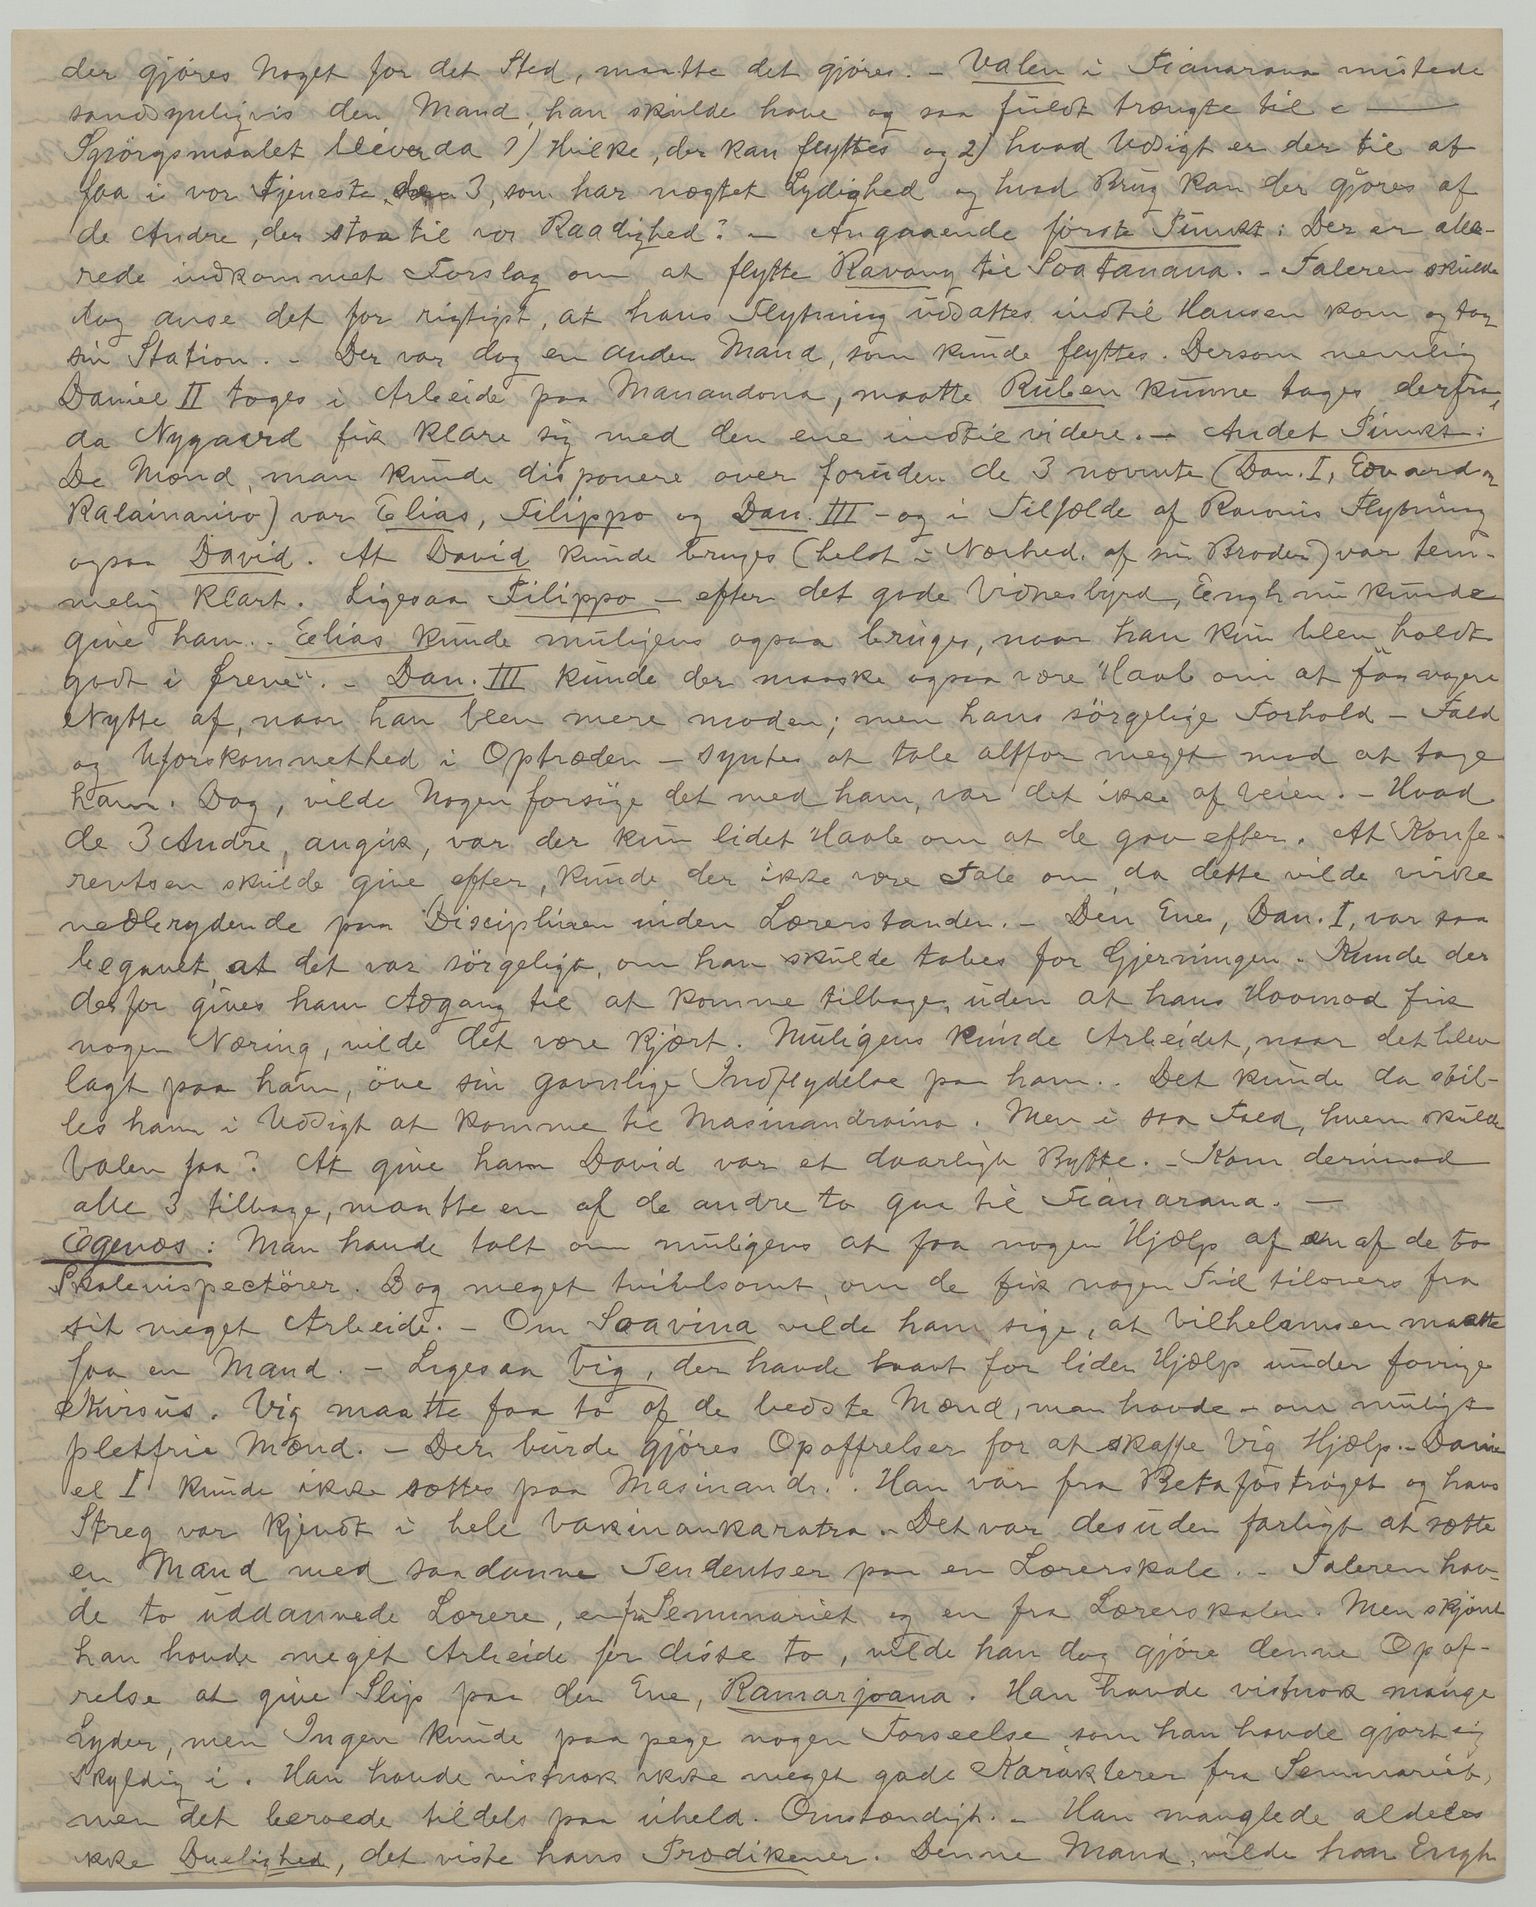 der gjøres noget for det Sted, maatte det gjøres. – Valen i Fianarana mistede
sandsynligvis den Mand, han skulde have og saa fuldt trængte til. –
Spørgsmaalet bliver da 1) Hvilke, der kan flyttes og 2) hvad Udsigt er der til at
faa i vor Tjeneste 3, som har nægtet Lydighed og hvad Brug kan der gjøres af
de Andre, der staa til vor Raadighed? – Angaaende første Punkt: Der er alle-
rede indkommet Forslag om at flytte Ravony til Soatanana. – Taleren skulde
dog anse det for rigtigst, at hans Flytning udsattes indtil Hansen kom og tog
sin Station. – Der var dog en anden Mand, som kunde flyttes. Dersom nemlig
Daniel II toges i Arbeide paa Manandona, maatte Ruben kunne tages derfra,
da Nygaard fik klare sig med den ene indtil videre. – Andet Punkt:
De Mænd, man kunde disponere over foruden de 3 nævnte (Dan. I, Edvard og
Ralainarivo) var Elias, Filippo og Dan. III – og i Tilfælde af Ravonis Flytning
ogsaa David. At David kunde bruges (helst i Nærhed. af sin Broder) var tem-
melig klart. Ligesaa Filippo – efter det gode Vidnesbyrd, Engh nu kunde
give ham. – Elias kunde muligens ogsaa bruges, naar han kun blev holdt
godt i Ørene". – Dan. III kunde der maaske ogsaa være Haab om at faa
Nytte af, naar han blev mere moden; men hans sørgelige Forhold – Fald
og Uforskammethed i Optræden – syntes at tale altfor meget mod at tage
ham. Dog, vilde Nogen forsøge det med ham, var det ikke af veien. – Hvad
de 3 Andre, angik, var der kun lidet Haab om at de gav efter. At Konfe-
rentsen skulde give efter, kunde der ikke være Tale om, da dette vilde virke
nedbrydende paa Disciplinen inden Lærerstanden. – Den Ene, Dan. I, var saa
begavet, at det var sørgeligt, om han skulde tabes for Gjerningen. Kunde der
derfor gives ham Adgang til at komme tilbage, uden at hans Hovmod fik
nogen Næring, vilde det være kjært. Muligens kunde Arbeidet, naar det blev
lagt paa ham, øve sin gavnlige Indflydelse paa ham. – Det kunde da stil-
les ham i Udsigt at komme til Masinandraina. Men i saa Fald, hvem skulde
Valen faa? At give ham David var et daarligt Bytte. – Kom derimod
alle 3 tilbage, maatte en af de andre to gaa til Fianarana. –
Egenæs: Man havde talt om muligens at faa nogen Hjælp af en af de to
Skoleinspectører. Dog meget tvivlsomt, om de fik nogen Tid tilovers fra
sit meget Arbeide. – Om Soavina vilde han sige, at Vilhelmsen maatte
faa en Mand. – Ligesaa Vig, der havde havt for liden Hjælp under forrige
Kursus. Vig maatte faa to af de bedste Mænd, man havde – om muligt
pletfrie Mænd. – Der burde gjøres Opoffrelser for at skaffe Vig Hjælp. – Dani-
el I kunde ikke sættes paa Masinandr. . Han var fra Betafostrøget og hans
Streg var kjendt i hele Vakinankaratra. – Det var desuden farligt at sætte
en Mand med saadanne Tendentser paa en Lærerskole. – Taleren hav-
de to uddannede Lærere, en fra Seminariet og en fra Lærerskolen. Men skjønt
han havde meget Arbeide for disse to, vilde han dog gjøre denne Opof-
relse at give Slip paa den Ene, Ramarjoana. Han havde vistnok mange
Lyder, men Ingen kunde paa pege nogen Forseelse som han havde gjort sig
skyldig i. Han havde vistnok ikke meget gode Karakterer fra Seminariet,
men det beroede tildels paa uheld. Omstændigh. – Han manglede aldeles
ikke Duelighed, det viste hans Prædikener. Denne Mand, vilde han Engh